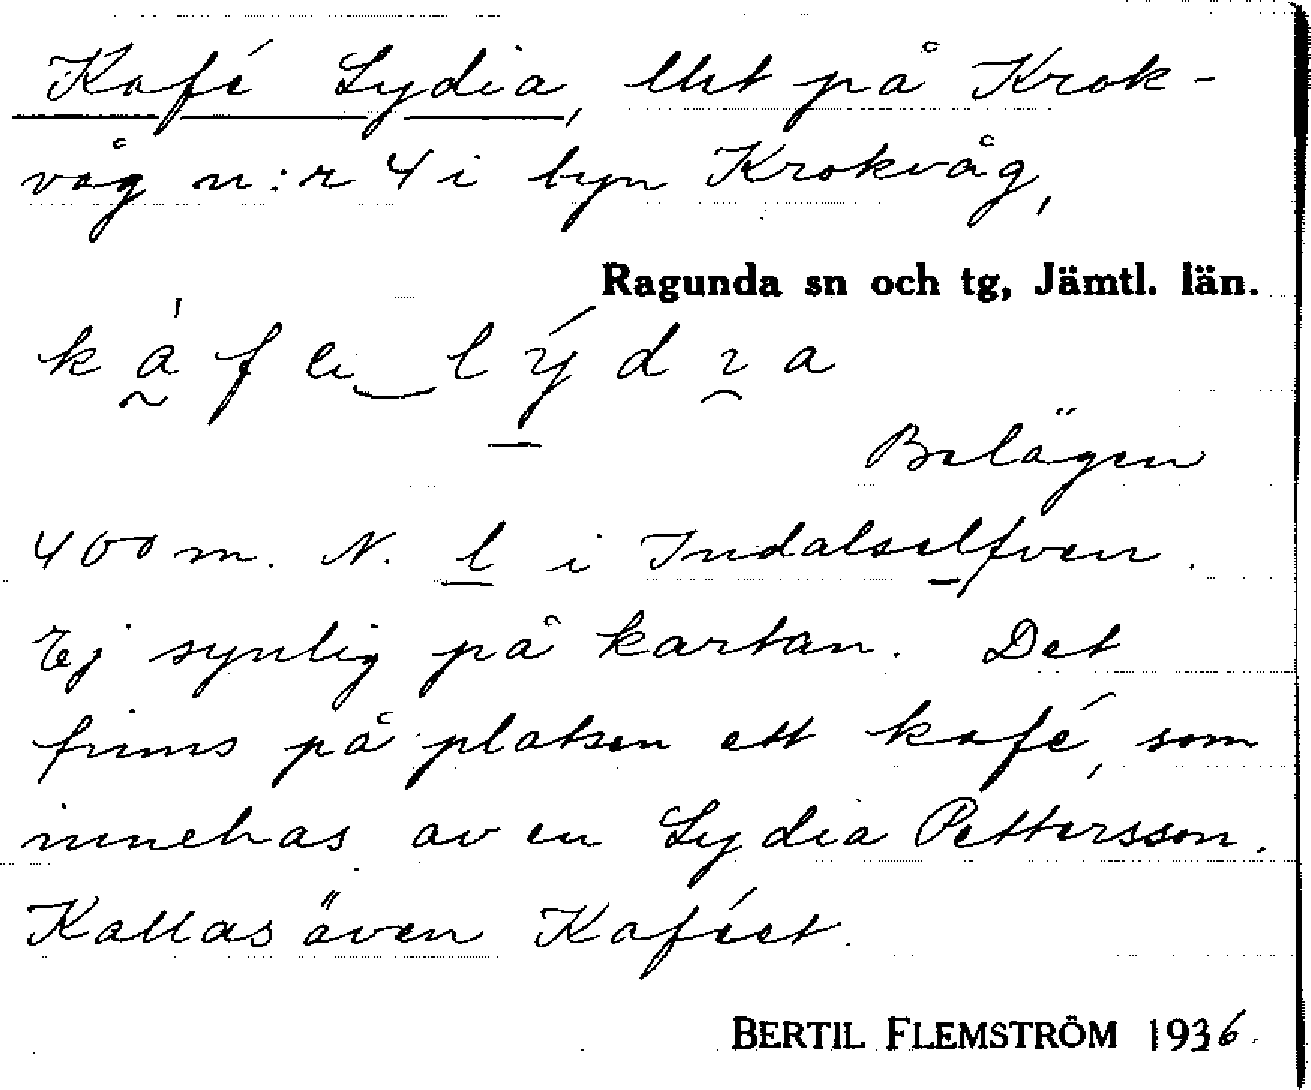 Kafé Lydia, lht på Krok-
våg n:r 4 i byn Krokvåg,
Ragunda sn och tg, Jämtl. län.
Belägen
400 m. N. l i Indalselfven.
Ej synlig på kartan. Det
finns på platsen ett kafé, som
innehas av en Lydia Pettersson.
Kallas även Kaféet.
BERTIL FLEMSTRÖM 1936.